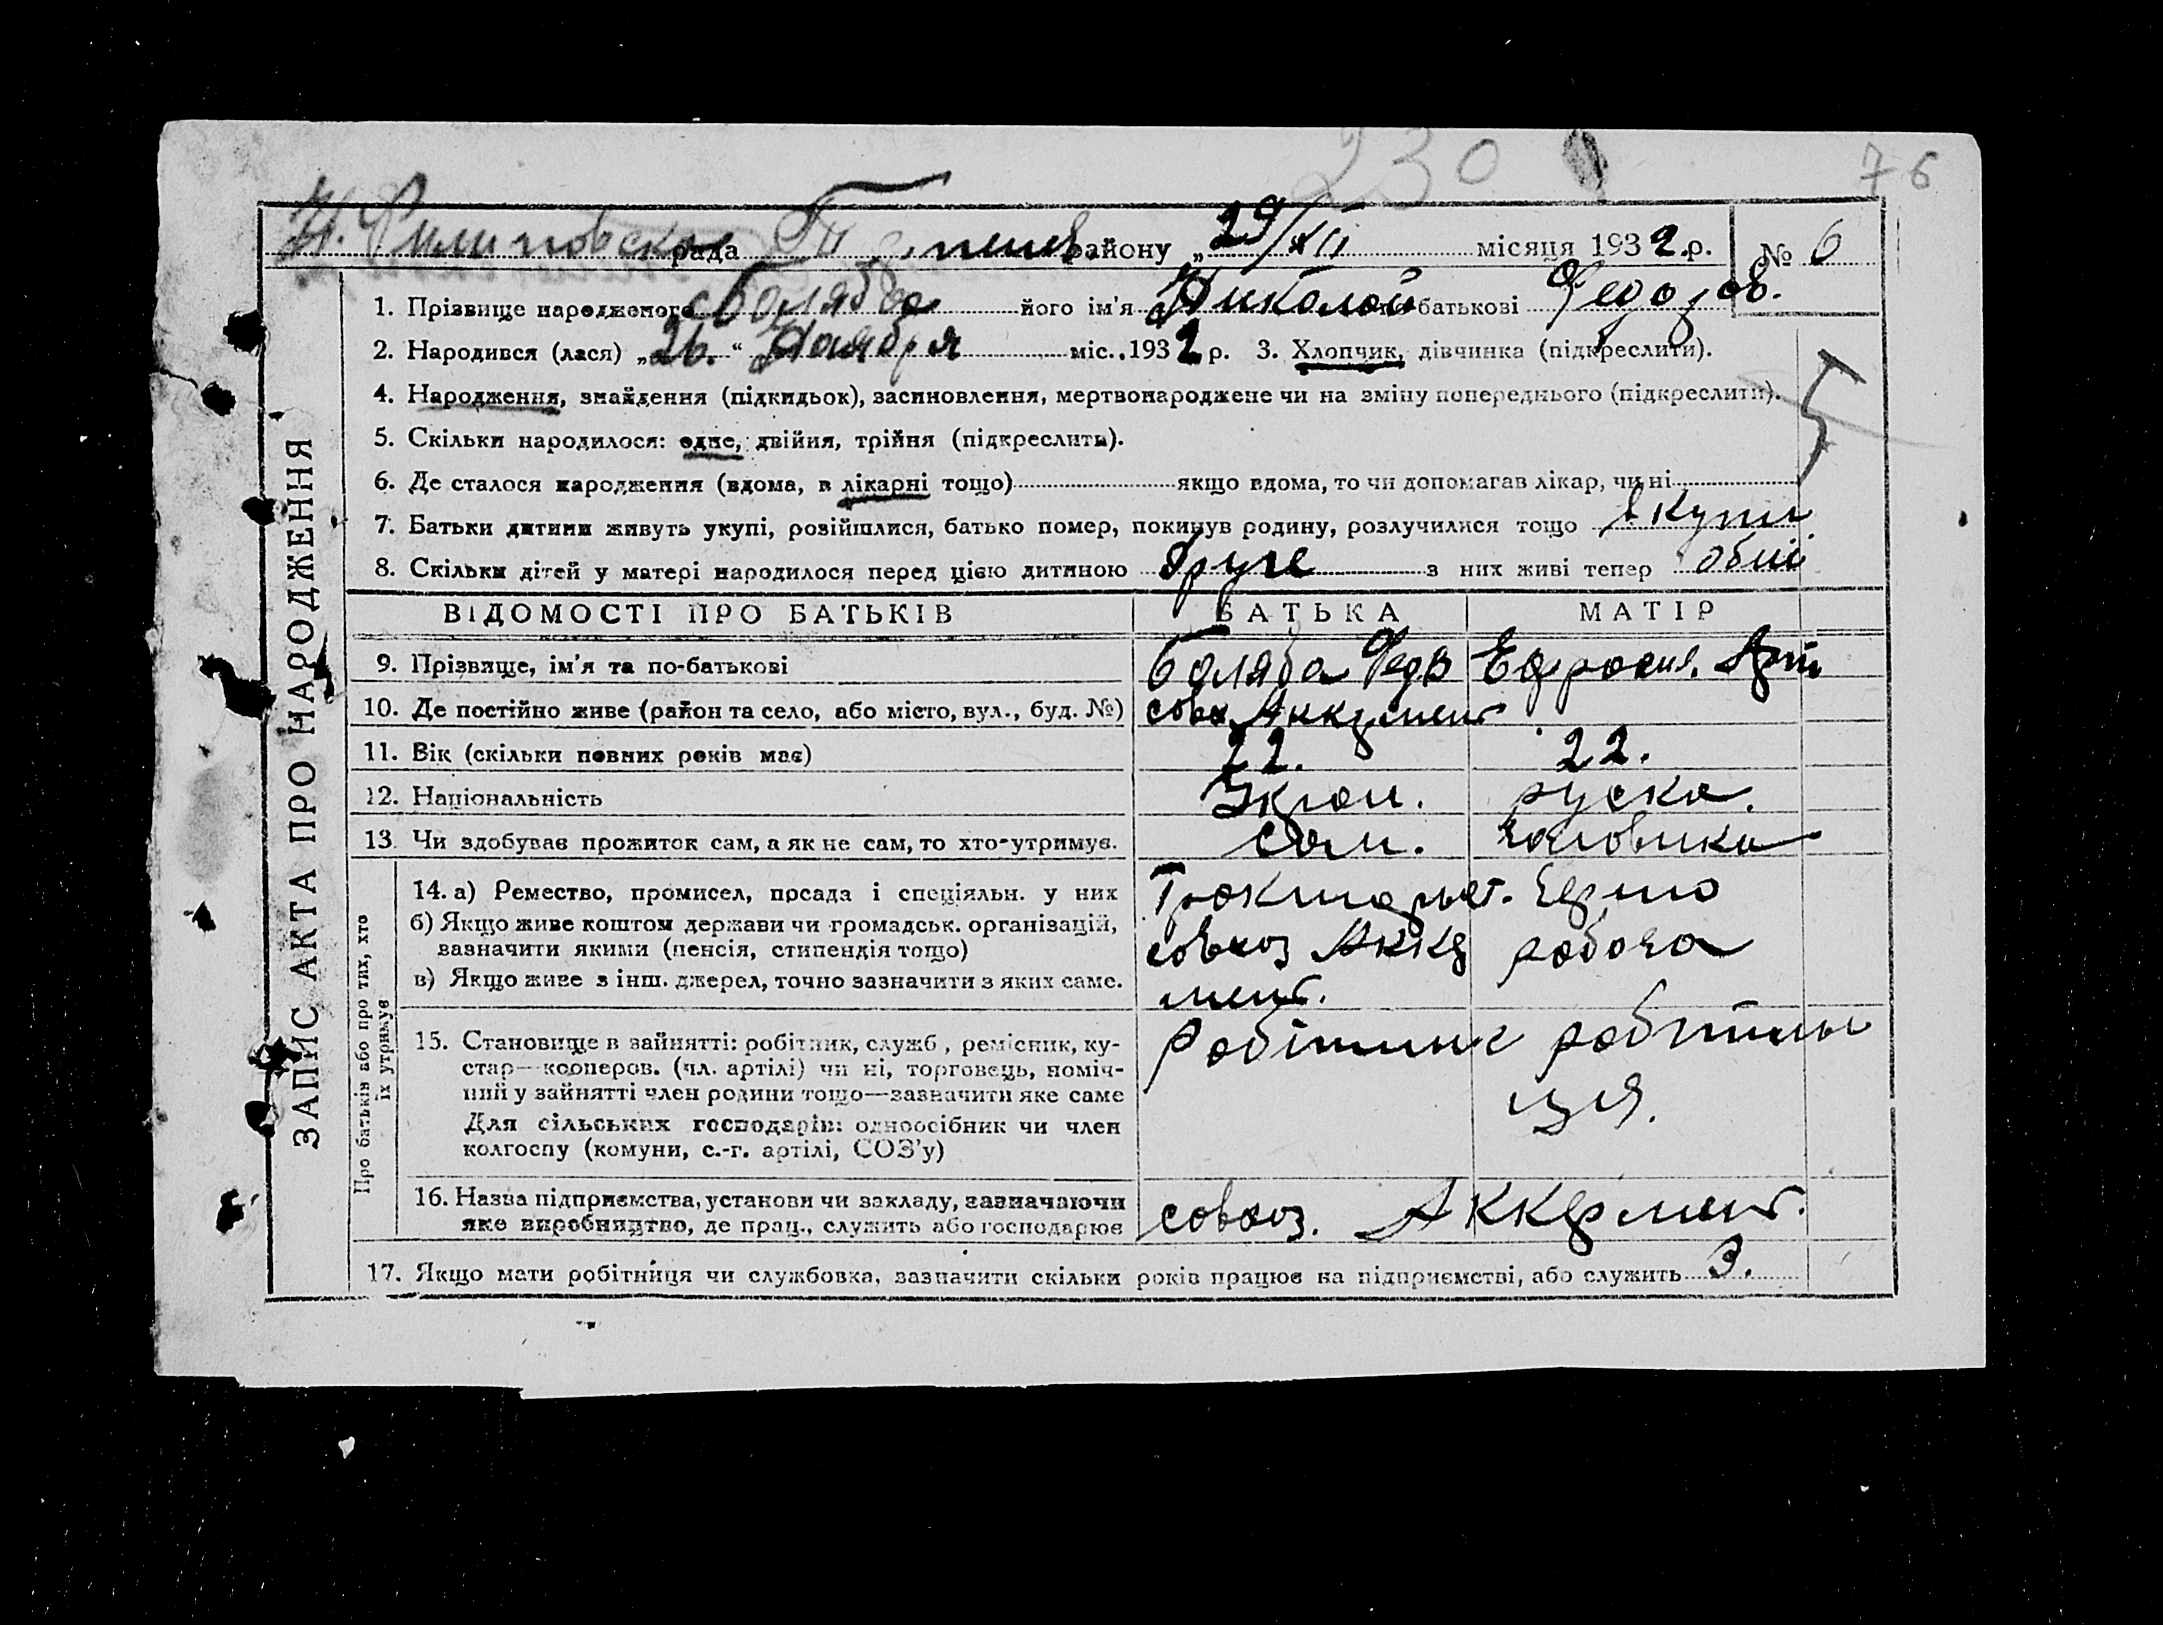 230
76
Н. Филиповска рада району „29/XII місяця 1932 р. № 6
1. Прізвище народженого Балябва його ім'я Николай по-батькові Федоров.
2. Народився (лася) „26.“ Ноября міс. 1932 р. 3. Хлопчик, дівчинка (підкреслити).
4. Народження, знайдення (підкидьок), засиновлення, мертвонароджене чи на зміну попереднього (підкреслити).
5. Скільки народилося: одне, двійня, трійня (підкреслить).
6. Де сталося народження (вдома, в лікарні тощо) якщо вдома, то чи допомагав лікар, чи ні
7. Батьки дитини живуть укупі, розійшлися, батько помер, покинув родину, розлучилися тощо вкупи
8. Скільки дітей у матері народилося перед цією дитиною друге з них живі тепер обиі
ВІДОМОСТІ ПРО БАТЬКІВ БАТЬКА МАТІР
9. Прізвище, ім'я та по-батькові Баляба Фед Ефросин.
10. Де постійно живе (район та село, або місто, вул., буд. №) совх Аккермент
11. Вік (скільки повних років має) 22. 22.
12. Національність Украи. руска.
13. Чи здобуває прожиток сам, а як не сам, то хто-утримує. Сам. Чоловика
14. а) Ремество, промисел, посада і спеціяльн. у них
б) Якщо живе коштом держави чи громадськ. організацій,
зазначити якими (пенсія, стипендія тощо)
в) Якщо живе з інш. джерел, точно зазначити з яких саме.
совхоз Аккер робоча
мент.
15. Становище в зайнятті: робітник, служб, ремісник, ку-
стар—кооперов. (чл. артілі) чи ні, торговець, поміч-
ний у зайнятті член родини тощо—зазначити яке саме
Для сільських господарів: одноосібник чи член
колгоспу (комуни, с.-г. артілі, СОЗ'у)
Робітник робітни
ця.
16. Назва підприємства, установи чи закладу, зазначаючи
яке виробництво, де прац., служить або господарює
совхоз. Аккермент.
17. Якщо мати робітниця чи службовка, зазначити скільки років працює на підприємстві, або служить 3.
ЗАПИС АКТА ПРО НАРОДЖЕННЯ
Про батьків або про тих, хто
їх утримує